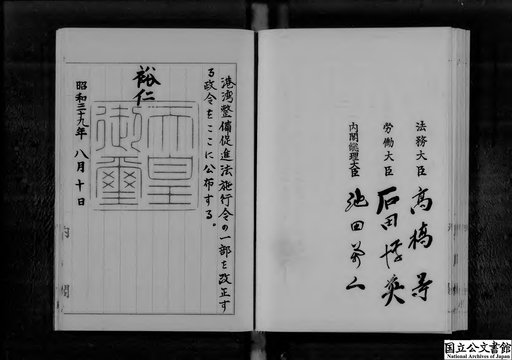 法務大臣 高橋等
労働大臣 石田博英
内閣総理大臣 池田勇人
港湾整備促進法施行令の一部を改正す
る政令をここに公布する。
裕仁
天皇
御璽
昭和三十九年 八月十日
内閣
国立公文書館
National Archives of Japan